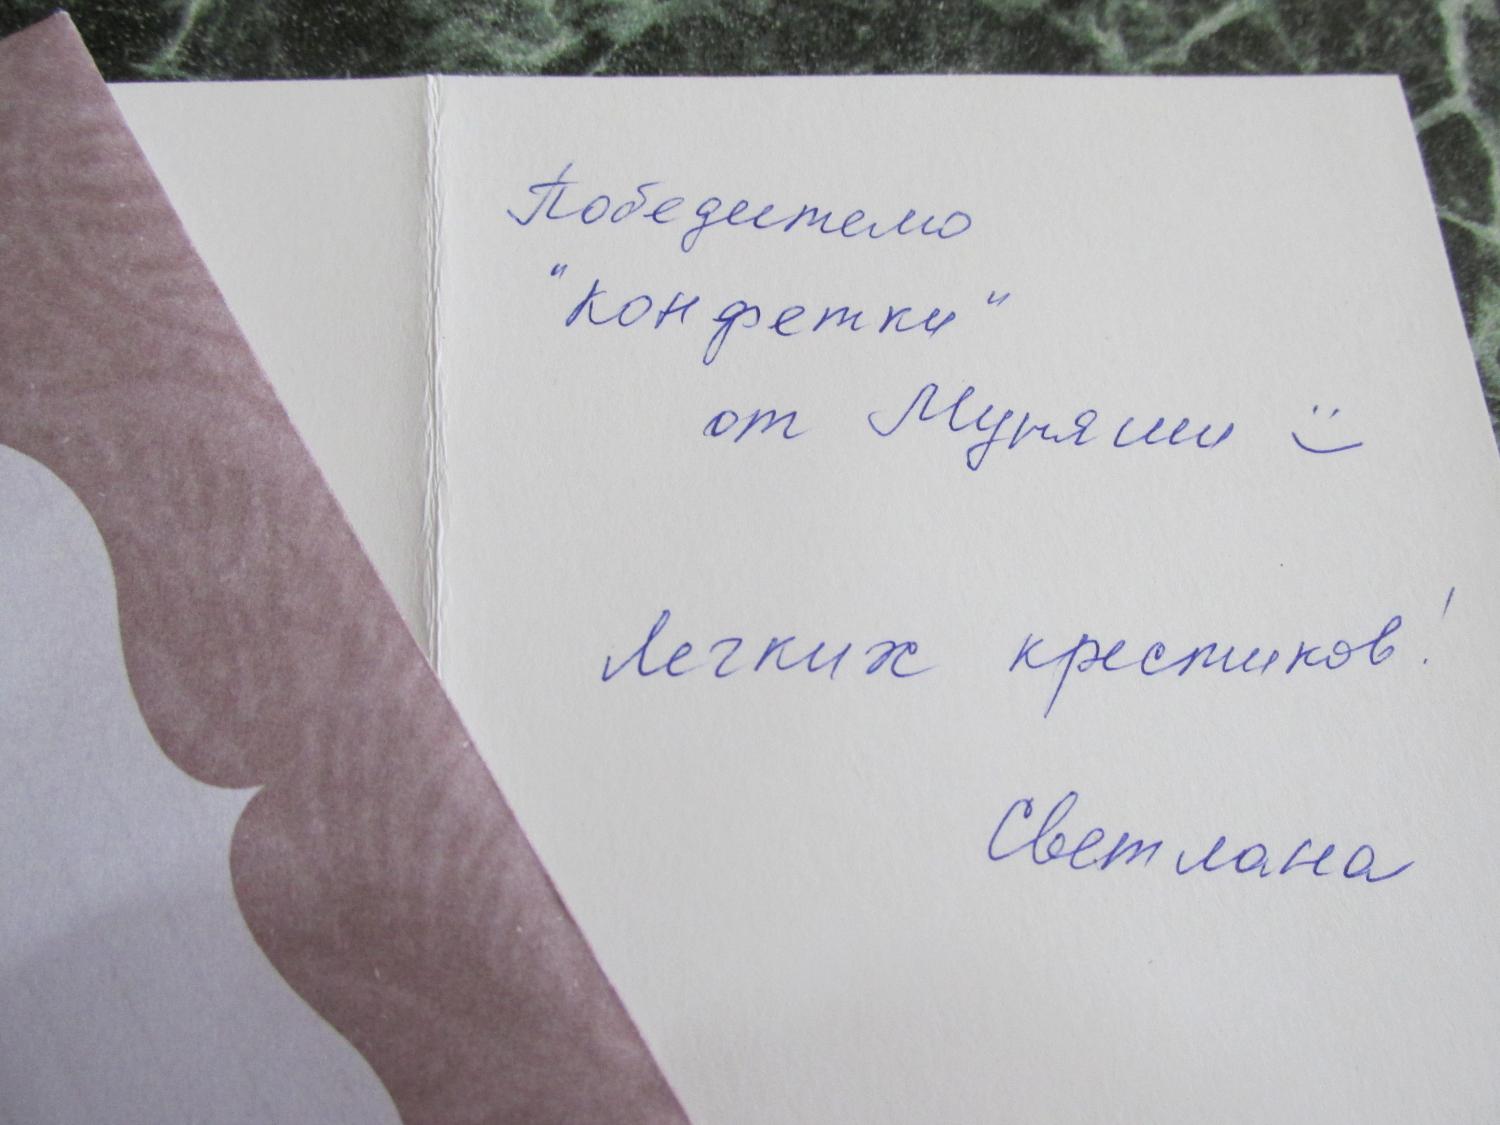 Победителю
"Конфетки"
от Муряши :)
Легких крестиков!
Светлана